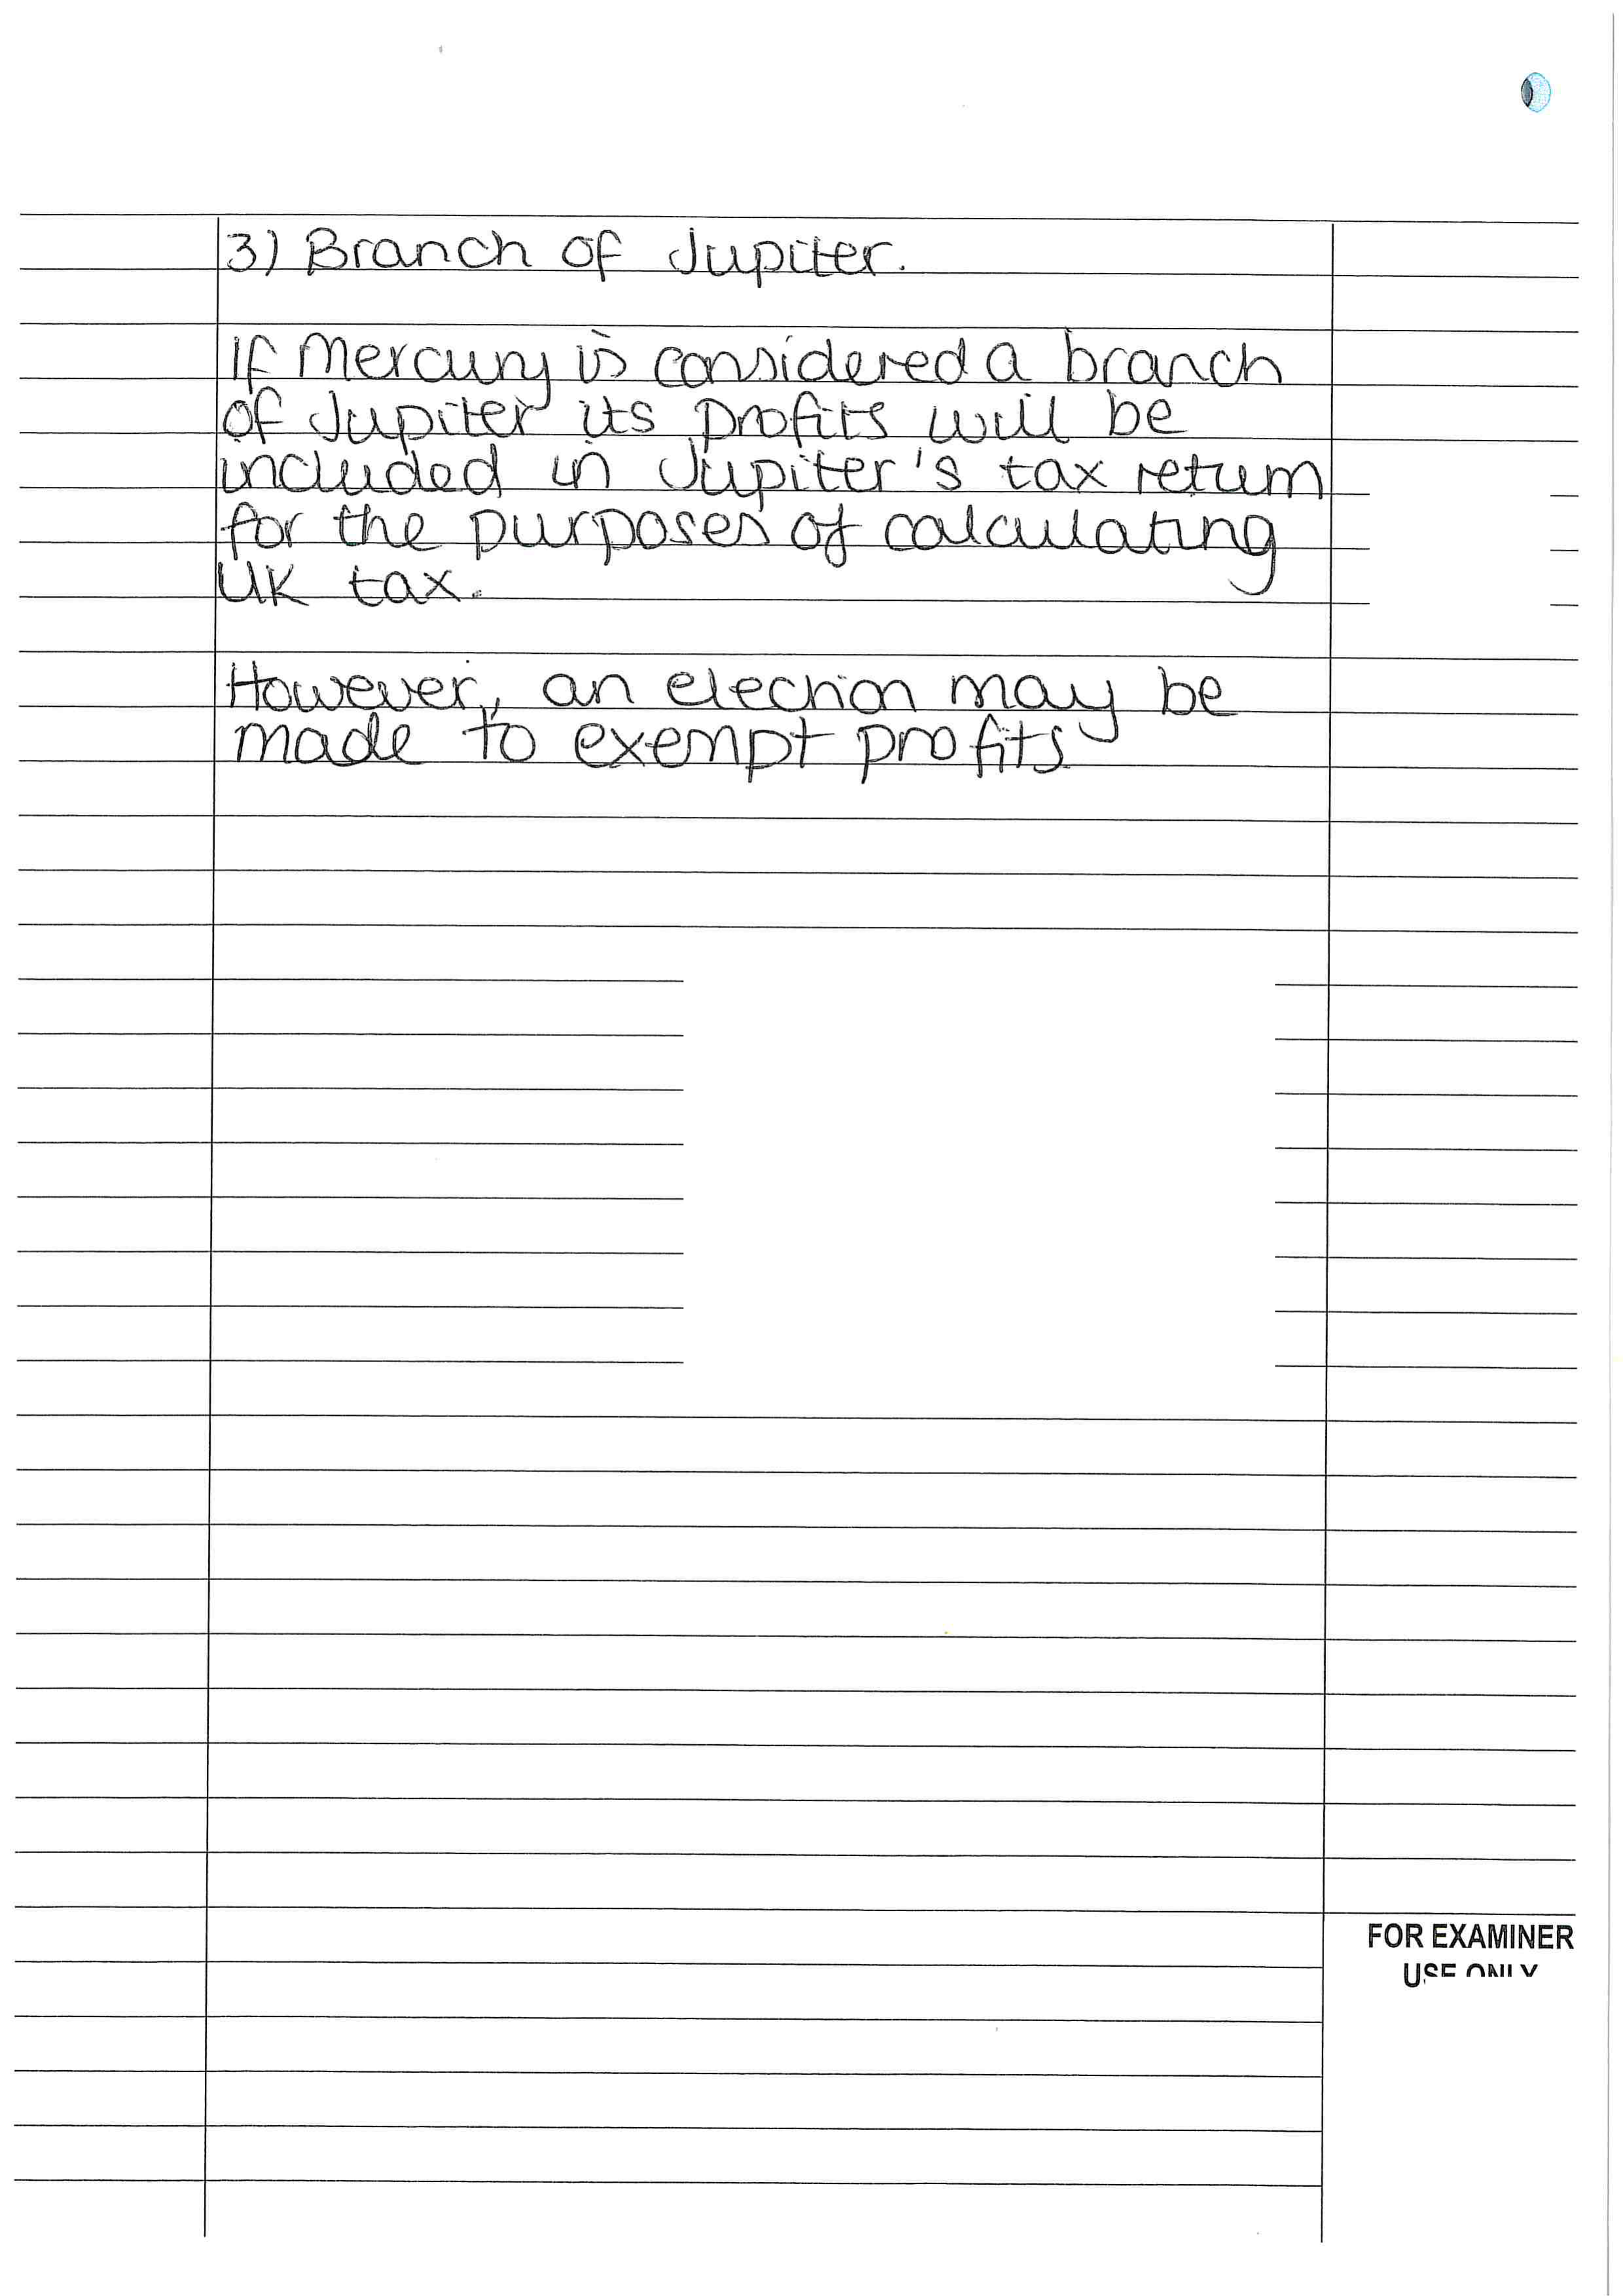 3) Branch of Jupiter.
If Mercury is considered a branch
of Jupiter its profits will be
included in Jupiter's tax return
for the purposes of calculating
UK tax.
However, an election may be
made to exempt profits
FOR EXAMINER
USE ONLY